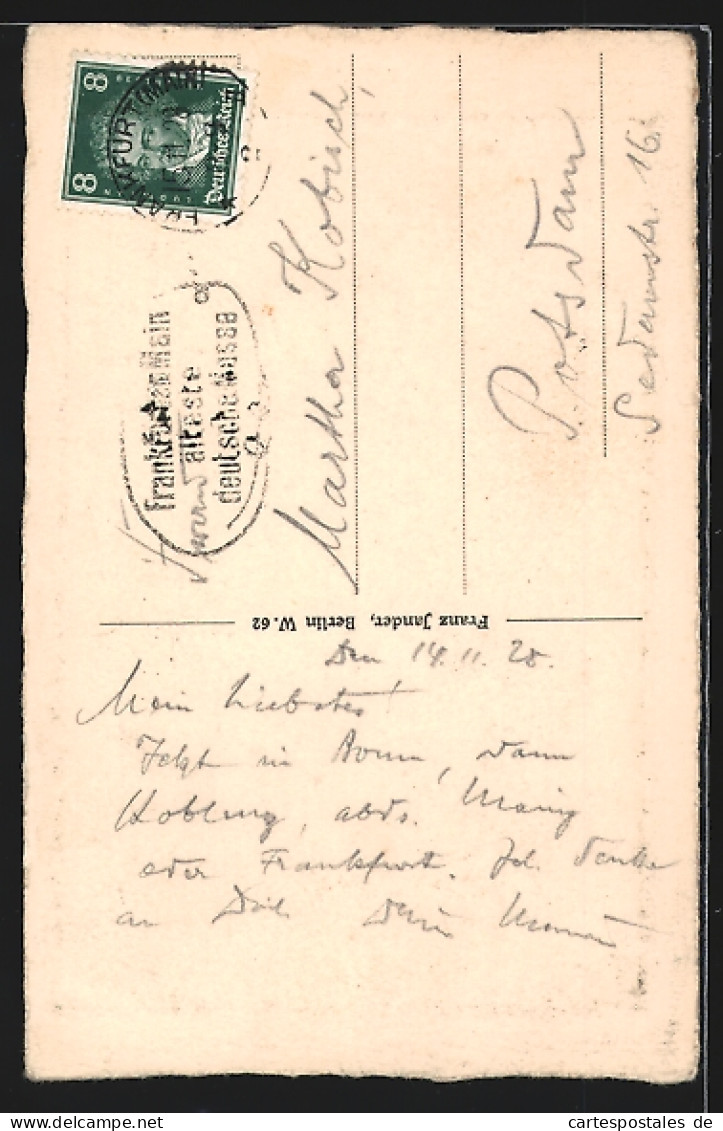 8 8
Deutsches Reich
FRANKFURT (MAIN)
15.11.
Frankfurt am Main
älteste
deutsche Messe
Martha Kobisch,
Potsdam
Sedanstr. 16.
Franz Jander, Berlin W. 62
Den 14.11. 28.
Mein Liebstes!
Jetzt in Bonn, dann
Koblenz, abds. Mainz
oder Frankfurt. Ich denke
an Dich Dein
cartespostales.de